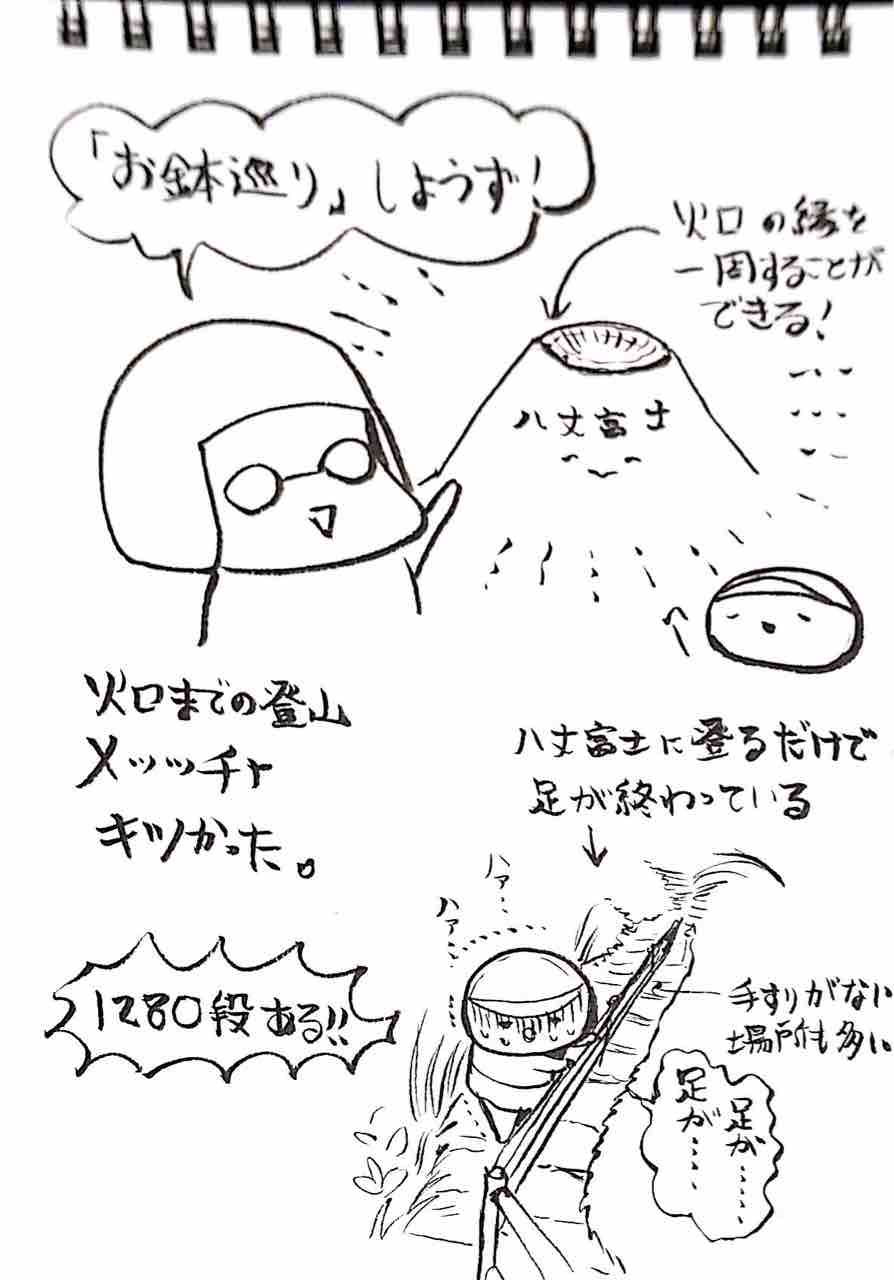 「お鉢巡り」しようず!
火口の縁を
一周することが
できる!
八丈富士
火口までの登山
メッッチャ
キツかった。
八丈富士に登るだけで
足が終わっている
ハァ…
ハァ…
1280段ある!!
手すりがない
場所も多い
足が……
足が……